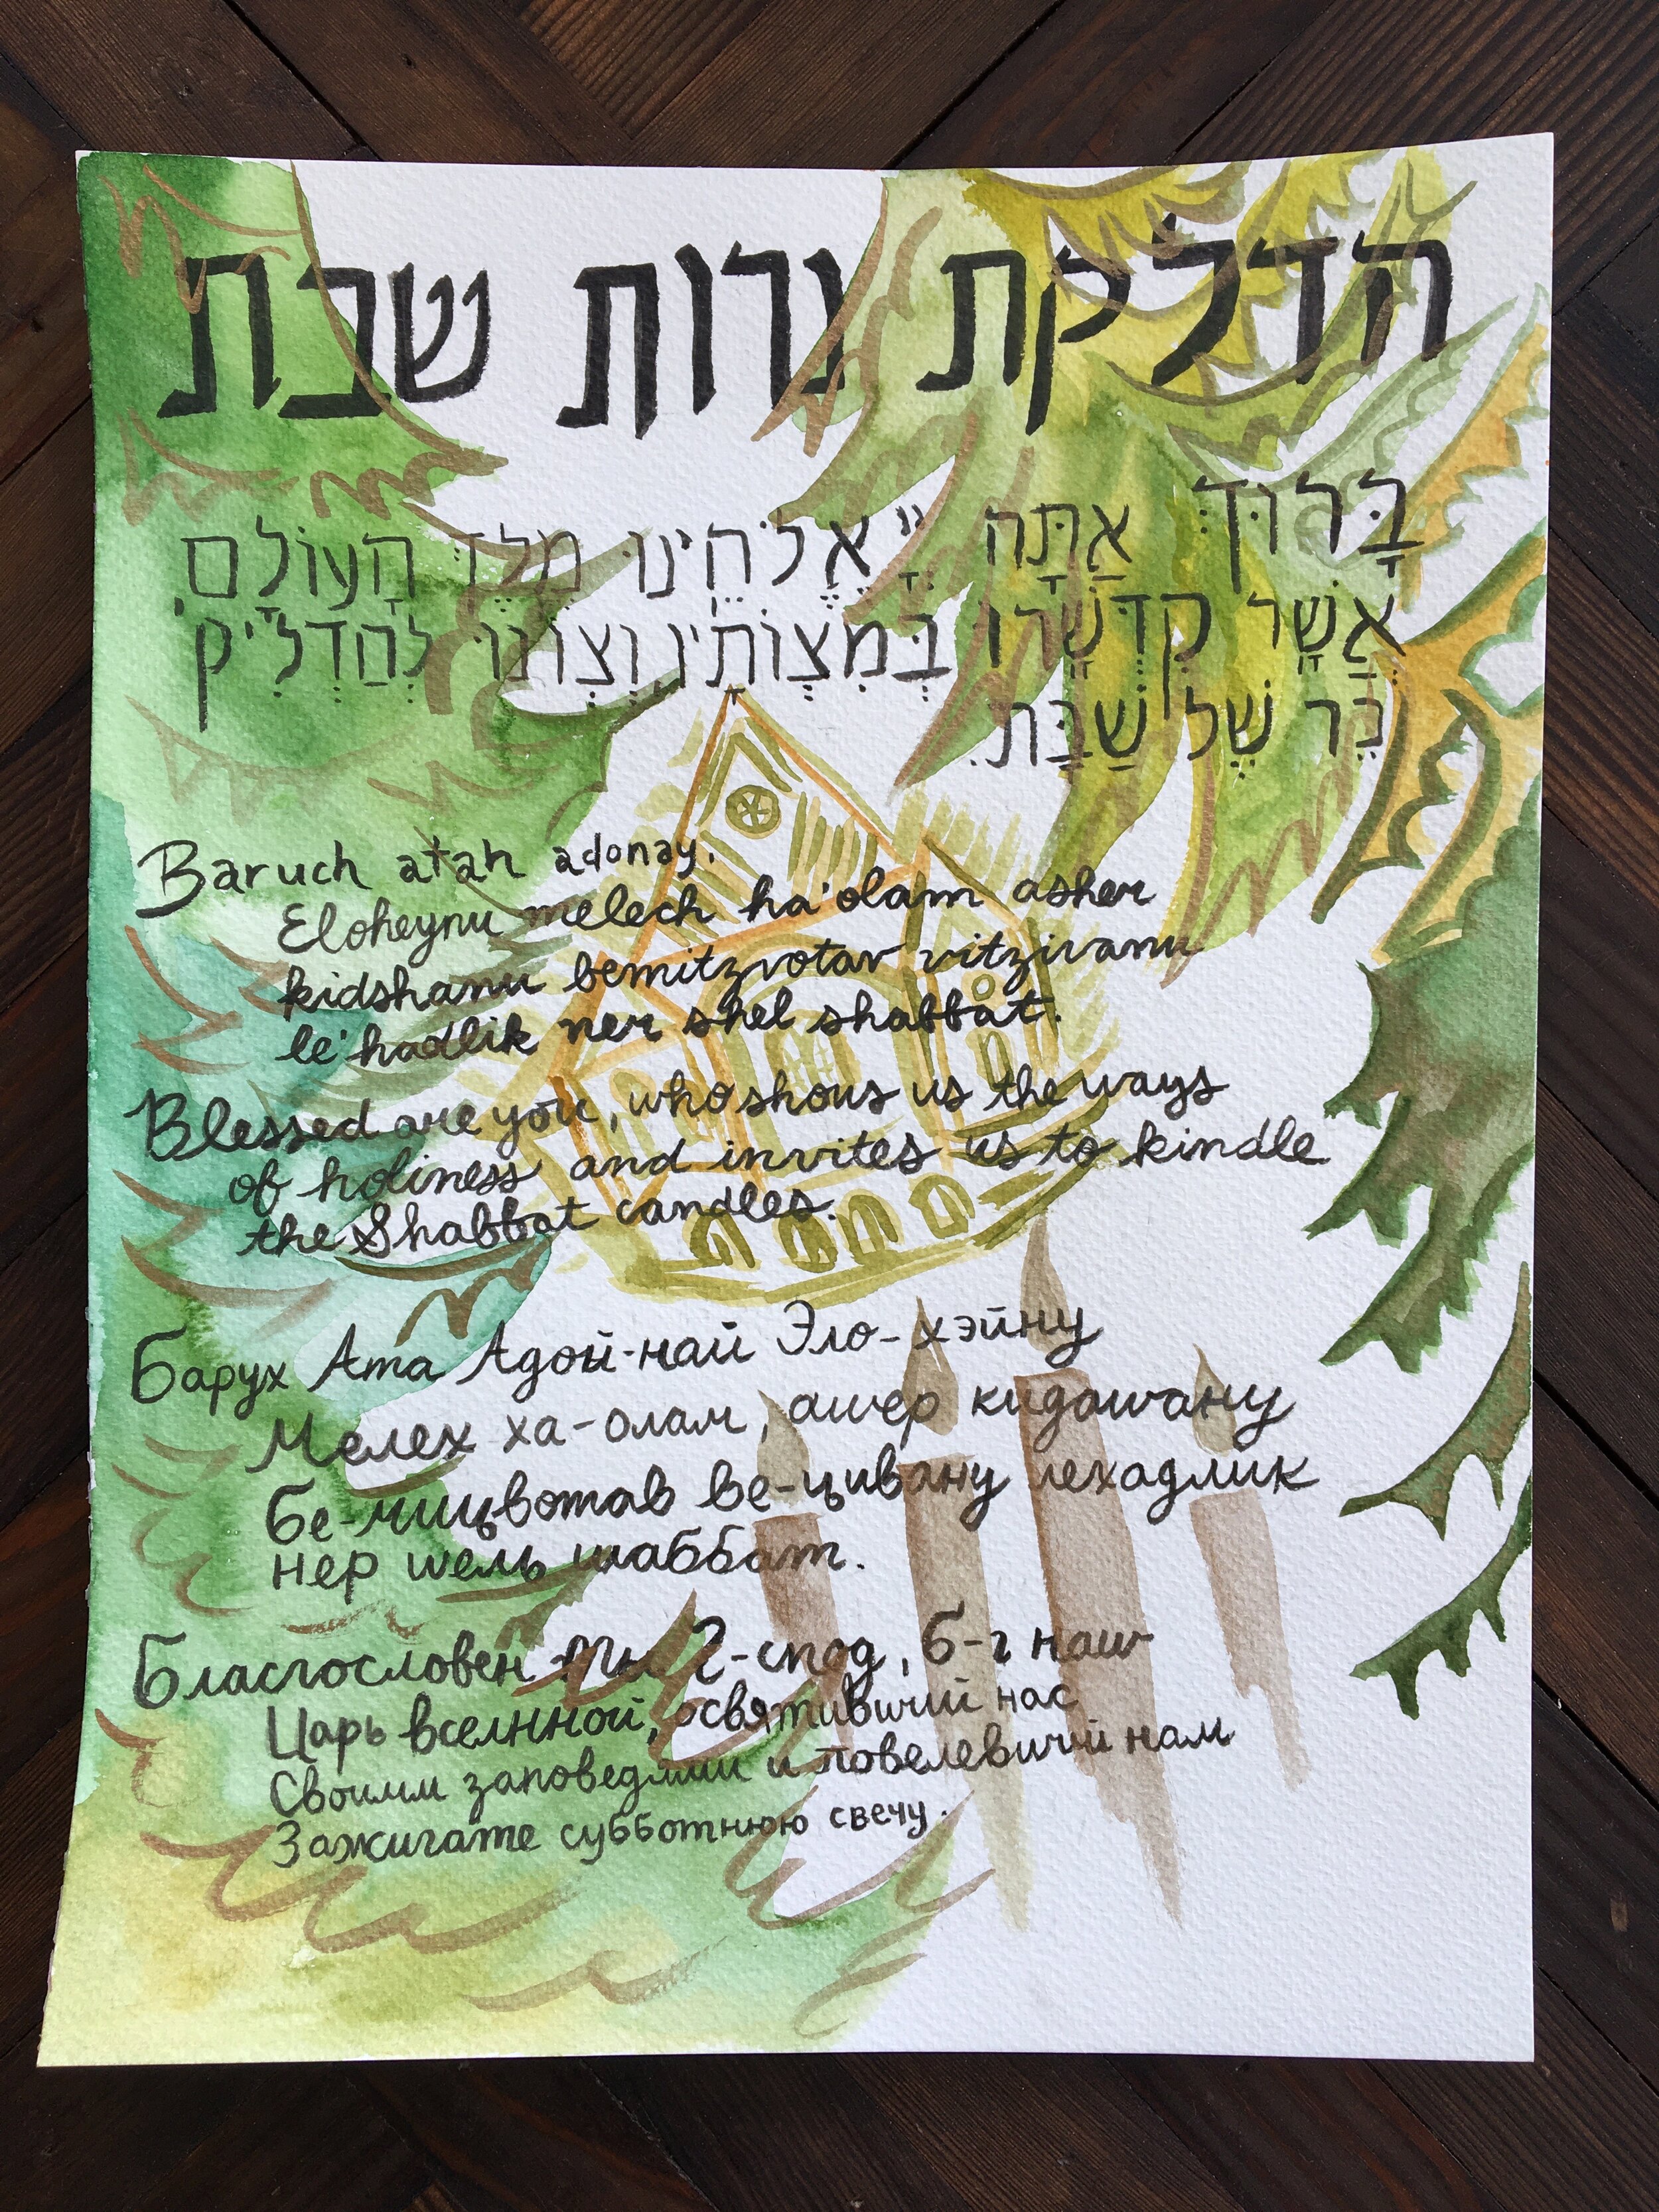 הדלקת נרות שבת
בָּרוּךְ אַתָּה יְיָ אֱלֹהֵינוּ מֶלֶךְ הָעוֹלָם
אֲשֶׁר קִדְּשָׁנוּ בְּמִצְוֹתָיו וְצִוָּנוּ לְהַדְלִיק
נֵר שֶׁל שַׁבָּת.
Baruch atah adonay.
Eloheynu melech ha'olam asher
kidshanu bemitzvotav vitzivanu
le'hadlik ner shel shabbat.
Blessed are you, who shows us the ways
of holiness and invites us to kindle
the Shabbat candles.
Барух Ата Адой-най Эло-хэйну
Мелех ха-олам, ашер кидашану
Бе-мицвотав ве-цивану лехадлик
нер шель шаббат.
Бласгословен ты Г-спод, Б-г наш
Царь вселнной, освятивичий нас
Своими заповедями и повелевичий нам
Зажигате субботнюю свечу.